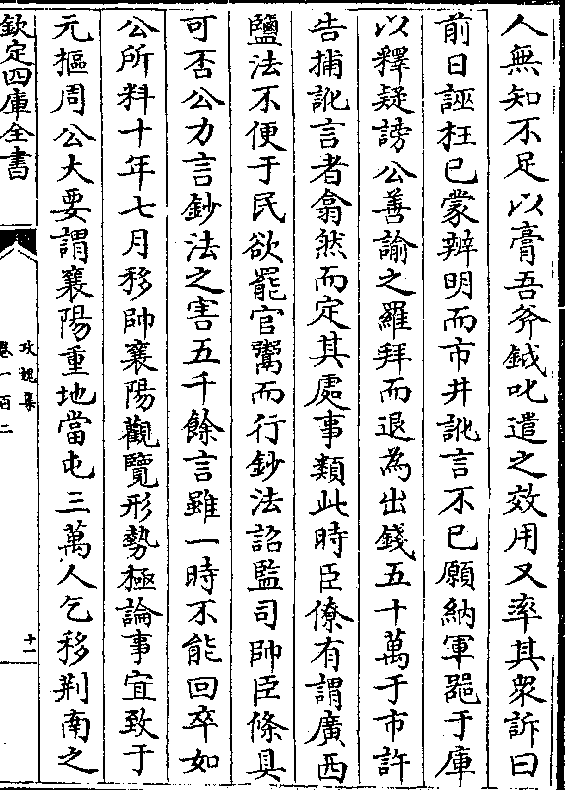 人無知不足以膏吾斧鉞叱遣之效用又率其衆訴曰
前日誣枉已蒙辨明而市井訛言不已願納軍器于庫
以釋疑謗公善諭之羅拜而退為出錢五十萬于市許
告捕訛言者翕然而定其處事類此時臣僚有謂廣西
鹽法不便于民欲罷官鬻而行鈔法詔監司帥臣條具
可否公力言鈔法之害五千餘言雖一時不能回卒如
公所料十年七月移帥襄陽觀覽形勢極論事宜致于
元樞周公大要謂襄陽重地當屯三萬人乞移荆南之
欽定四庫全書
攻媿集
卷一百二
十一